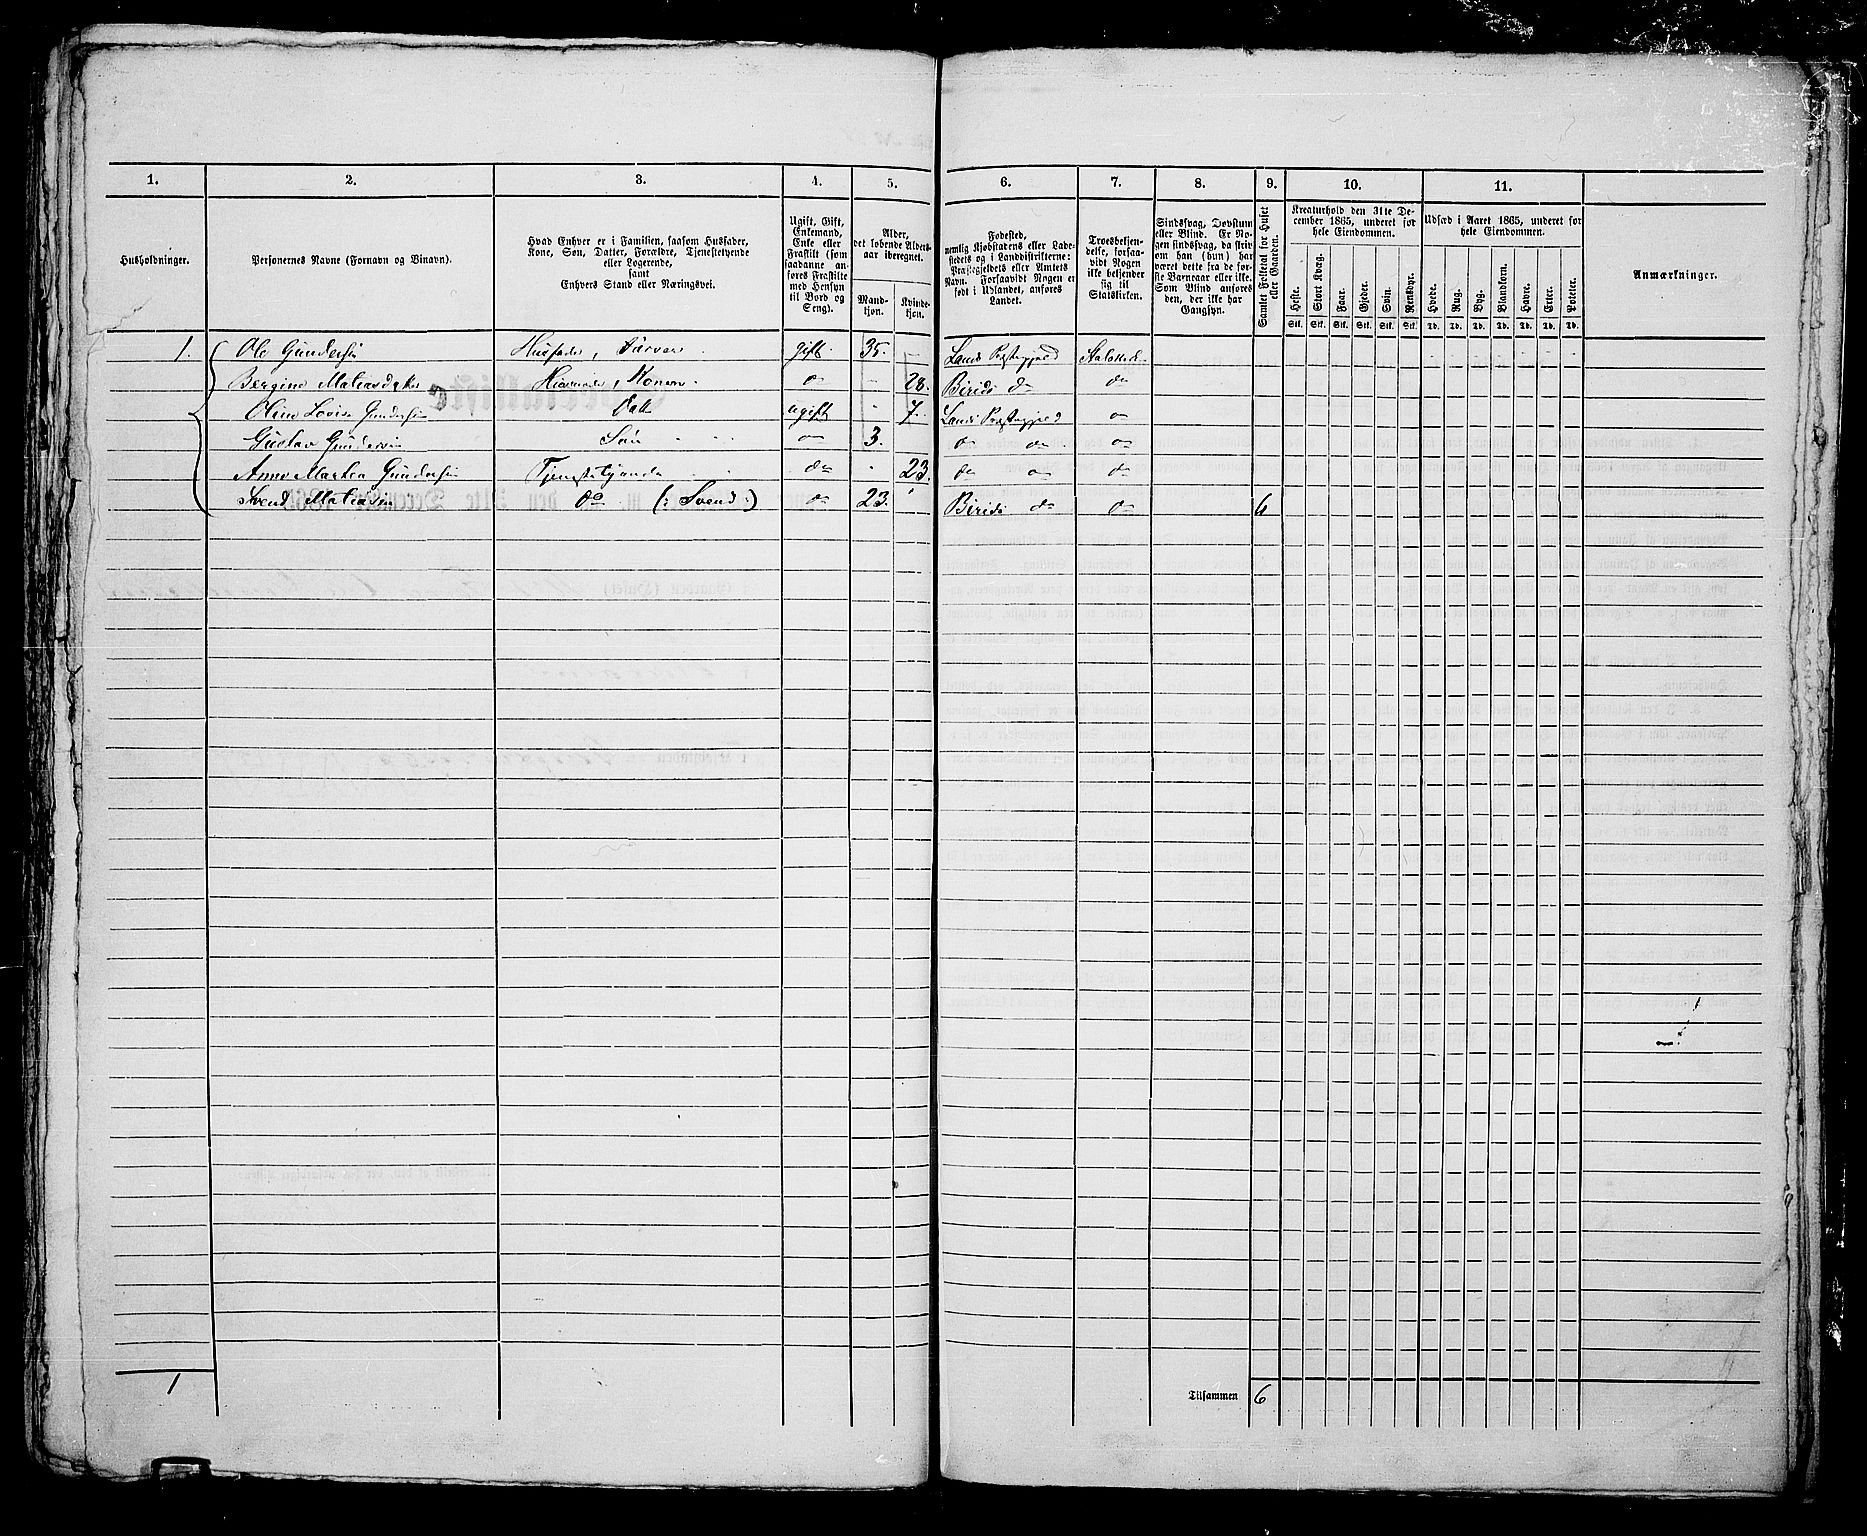 1. 2. 3. 4. 5. 6. 7. 8. 9. 10. 11.
Husholdninger.
Personernes Navne (Fornavn og Binavn).
Hvad Enhver er i Familien, saasom Husfader,
Kone, Søn, Datter, Forældre, Tjenestetyende
eller Logerende,
samt
Enhvers Stand eller Næringsvei.
Ugift, Gift,
Enkemand,
Enke eller
Fraskilt (som
saadanne an-
føres Fraskilte
med Hensyn
til Bord og
Seng).
Alder,
det løbende Alders-
aar iberegnet.
Mand-
kjøn.
Kvinde-
kjøn.
Fødested,
nemlig Kjøbstadens eller Lade-
stedets og i Landdistrikterne:
Præstegjeldets eller Amtets
Navn. Forsaavidt Nogen er
født i Udlandet, anføres
Landet.
Troesbekjen-
delse, forsaa-
vidt Nogen
ikke bekjender
sig til
Statskirken.
Sindssvag, Døvstum
eller Blind. Er No-
gen sindssvag, da skriv
om han (hun) har
været dette fra de før-
ste Barneaar eller ikke.
Som Blind anføres
den, der ikke har
Gangsyn.
Samlet Folketal for Huset
eller Gaarden.
Kreaturhold den 31te De-
cember 1865, underet for
hele Eiendommen.
Heste. Stort Kvæg. Faar. Gjeder. Svin. Rensdyr.
Stk. Stk. Stk. Stk. Stk. Stk.
Udsæd i Aaret 1865, underet for
hele Eiendommen.
Hvede. Rug. Byg. Blandkorn. Havre. Erter. Poteter.
Td. Td. Td. Td. Td. Td. Td.
Anmærkninger.
1. Ole Gundersen Husfader, Farver gift 35. Lands Præstegjeld Statskirk.
Bergine Matiasdatter Husmoder, Konen do 28. Birids do do
Oline Lovise Gundersen Datt ugift 7. Lands Præstegjeld do
Gustav Gundersen Søn do 3. do do do
Anne Marthea Gundersen Tjenestetyende do 23. do do do
Svend Matiasen do (: Svend :) do 23. Birids do do 6
1
Tilsammen 6